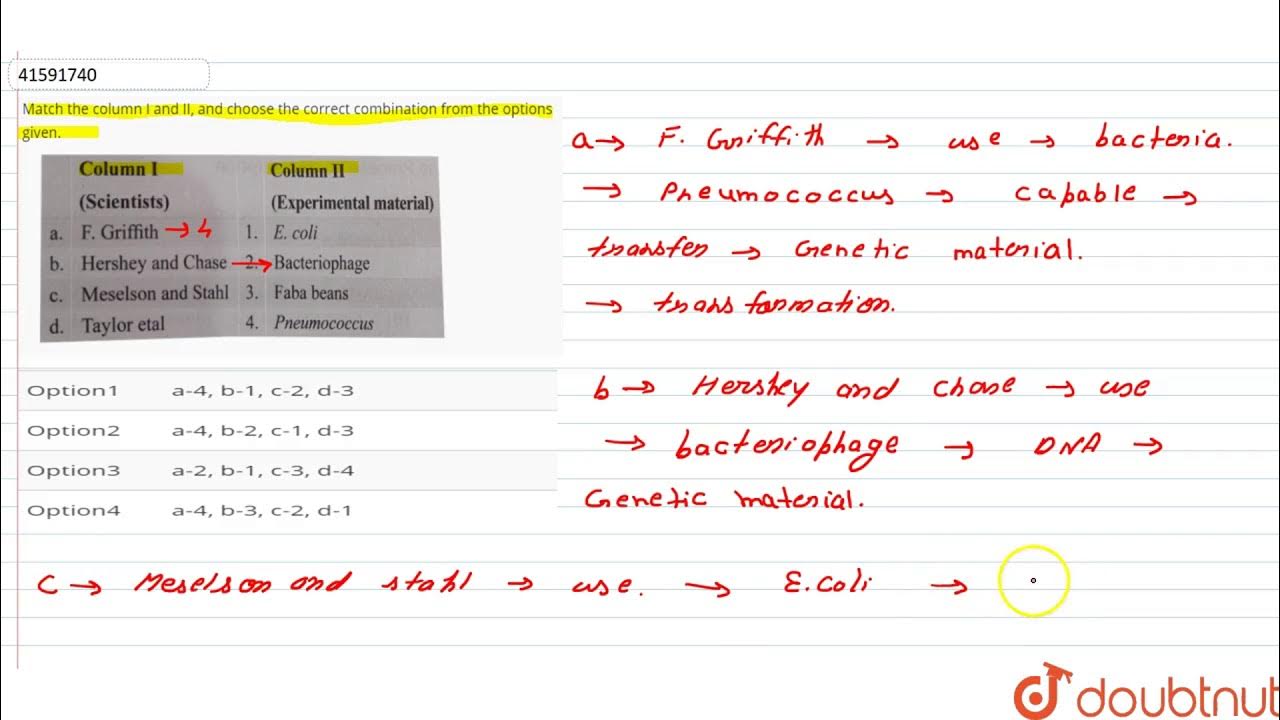 41591740
Match the column I and II, and choose the correct combination from the options
given.
Column I Column II
(Scientists) (Experimental material)
a. F. Griffith → 4 1. E. coli
b. Hershey and Chase → 2. Bacteriophage
c. Meselson and Stahl 3. Faba beans
d. Taylor etal 4. Pneumococcus
Option1 a-4, b-1, c-2, d-3
Option2 a-4, b-2, c-1, d-3
Option3 a-2, b-1, c-3, d-4
Option4 a-4, b-3, c-2, d-1
a → F. Griffith → use → bacteria.
→ Pneumococcus → capable →
transfer → Genetic material.
→ transformation.
b → Hershey and Chase → use
→ bacteriophage → DNA →
Genetic material.
C → Meselson and stahl → use. → E.coli →
doubtnut